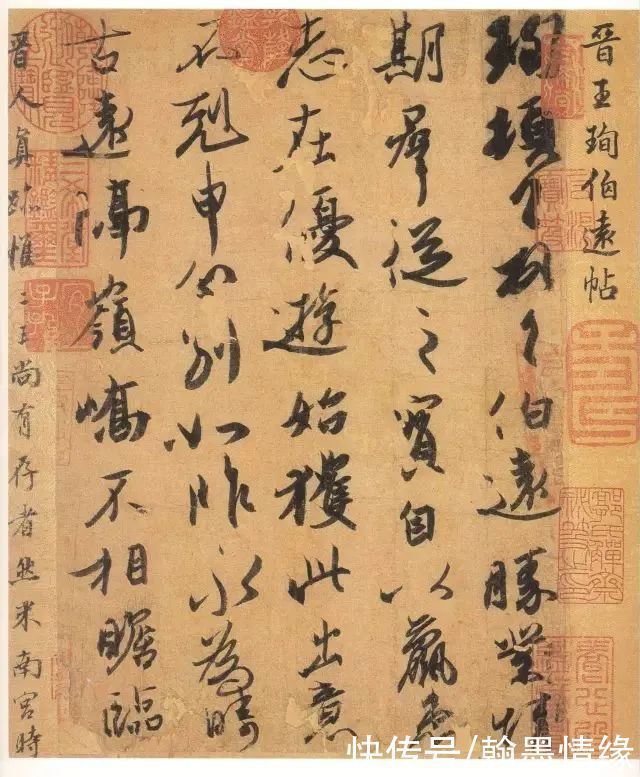 晋王珣伯遠帖
珣頓首頓首伯遠勝業情
期羣從之寶自以羸患
志在優遊始獲此出意
不剋申分別如昨永為疇
古遠隔嶺嶠不相瞻臨
晋人真跡惟二王尚有存者然米南宮時
快传号/翰墨情缘